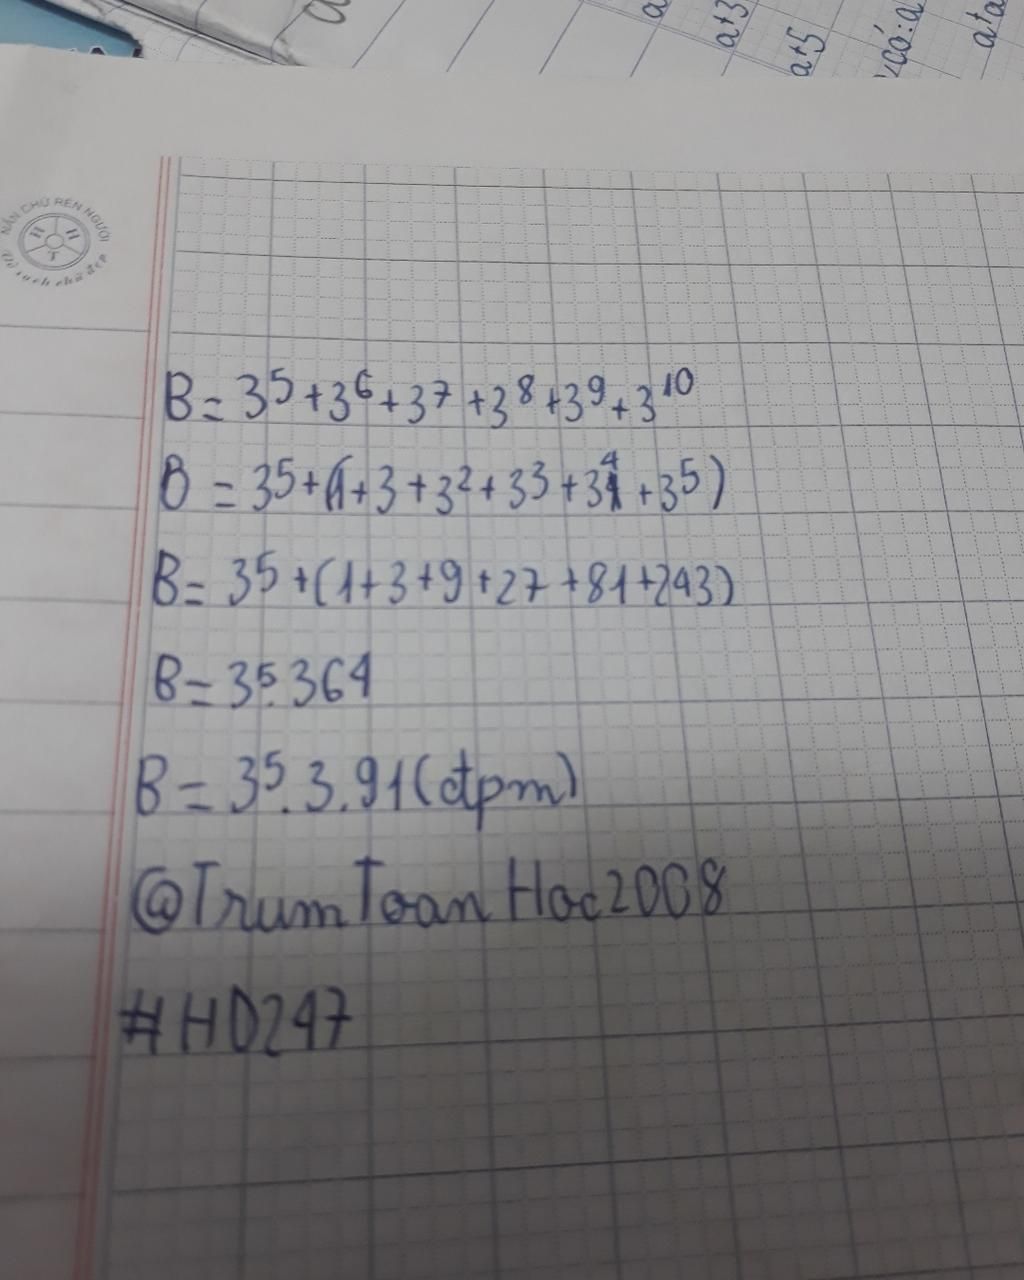 a
a+3
a+5
có: a
a+a
NẮN CHỮ RÈN NGƯỜI
H H T
Vở sạch chữ đẹp
B = 3⁵ + 3⁶ + 3⁷ + 3⁸ + 3⁹ + 3¹⁰
B = 3⁵ + (1 + 3 + 3² + 3³ + 3⁴ + 3⁵)
B = 3⁵ + (1 + 3 + 9 + 27 + 81 + 243)
B = 3⁵. 364
B = 3⁵. 3. 91 (đpm)
@TrumToanHoc2008
#HD247